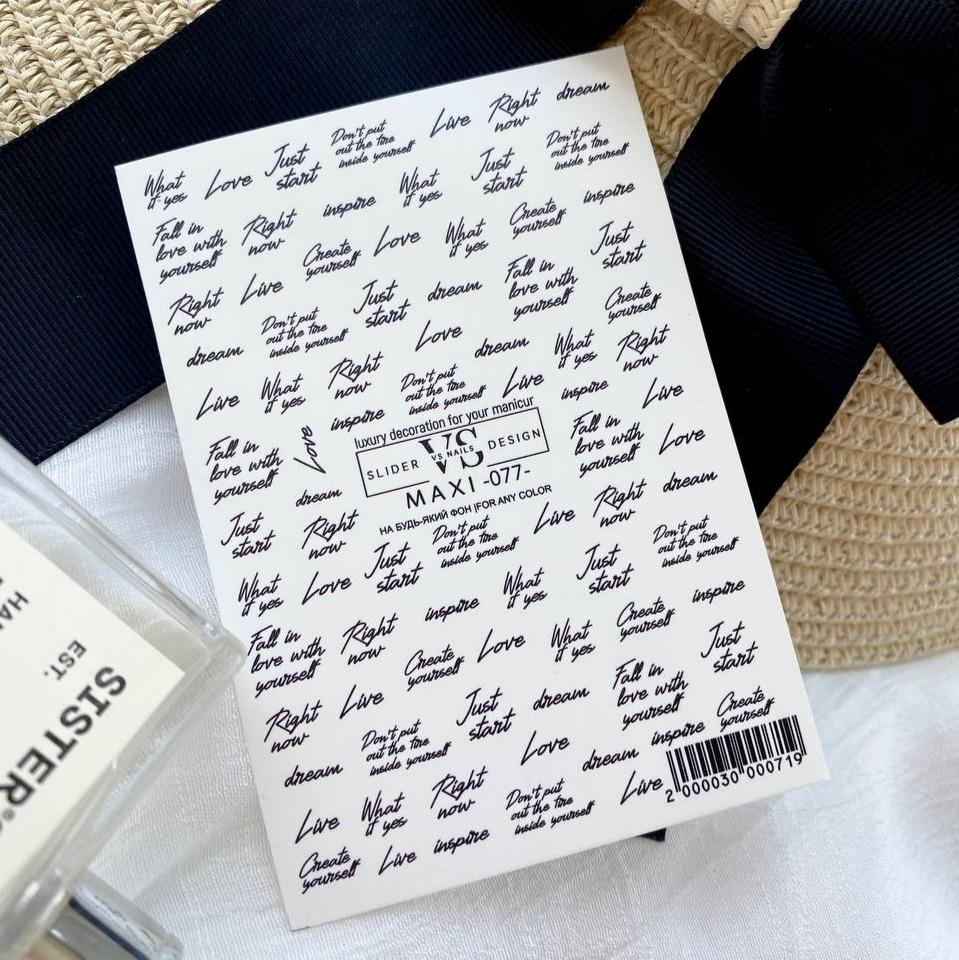 What
if yes
Love
Just
start
Don't put
out the fire
inside yourself
Live
Right
now
dream
Fall in
love with
yourself
Right
now
inspire
What
if yes
Just
start
Don't put
out the fire
inside yourself
Right
now
Live
Create
yourself
Love
What
if yes
Create
yourself
inspire
dream
Don't put
out the fire
inside yourself
Just
start
dream
Fall in
love with
yourself
Just
start
Live
What
if yes
Right
now
Love
dream
What
if yes
Right
now
Create
yourself
Fall in
love with
yourself
Love
inspire
Don't put
out the fire
inside yourself
Live
inspire
Live
dream
luxury decoration for your manicur
SLIDER VS DESIGN
VS NAILS
MAXI -077-
НА БУДЬ-ЯКИЙ ФОН |FOR ANY COLOR
Fall in
love with
yourself
Love
Just
start
Right
now
Just
start
Don't put
out the fire
inside yourself
Live
Right
now
dream
What
if yes
Love
inspire
What
if yes
Just
start
Don't put
out the fire
inside yourself
Fall in
love with
yourself
Right
now
Create
yourself
Love
What
if yes
Create
yourself
inspire
Right
now
Live
Don't put
out the fire
inside yourself
Just
start
dream
Fall in
love with
yourself
Just
start
dream
What
if yes
Right
now
Love
dream
inspire
Create
yourself
Live
Create
yourself
Live
inspire
Don't put
out the fire
inside yourself
Live
2 000030 000719
SISTER
EST.
HAN